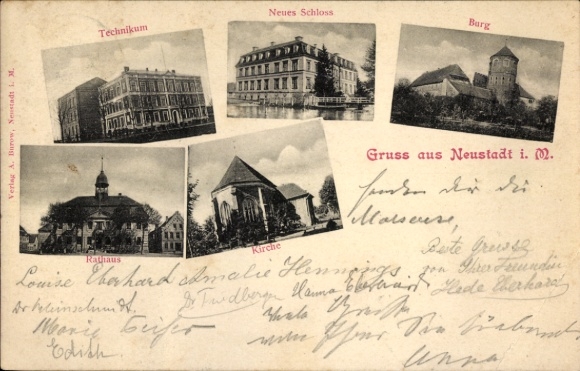 Technikum
Neues Schloss
Burg
Verlag A. Burow, Neustadt i. M.
Gruss aus Neustadt i. M.
Rathaus
Kirche
senden dir die
Beste Grüsse
von Ihrer Freundin
Hede Eberhard
Louise Eberhard Amalie Hennings
Hanna Eberhard
Marie
Edith
Viele Grüsse
Anna